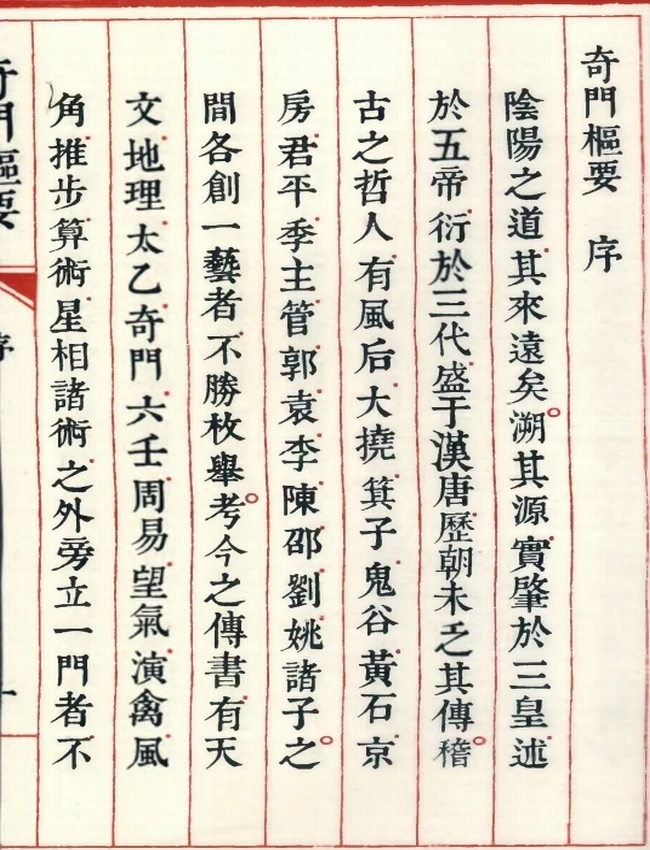 奇門樞要 序
陰陽之道其來遠矣溯其源實肇於三皇述
於五帝衍於三代盛于漢唐歷朝未乏其傳稽
古之哲人有風后大撓箕子鬼谷黃石京
房君平季主管郭袁李陳邵劉姚諸子之
間各創一藝者不勝枚舉考今之傳書有天
文地理太乙奇門六壬周易望氣演禽風
角推步算術星相諸術之外旁立一門者不
奇門樞要
序